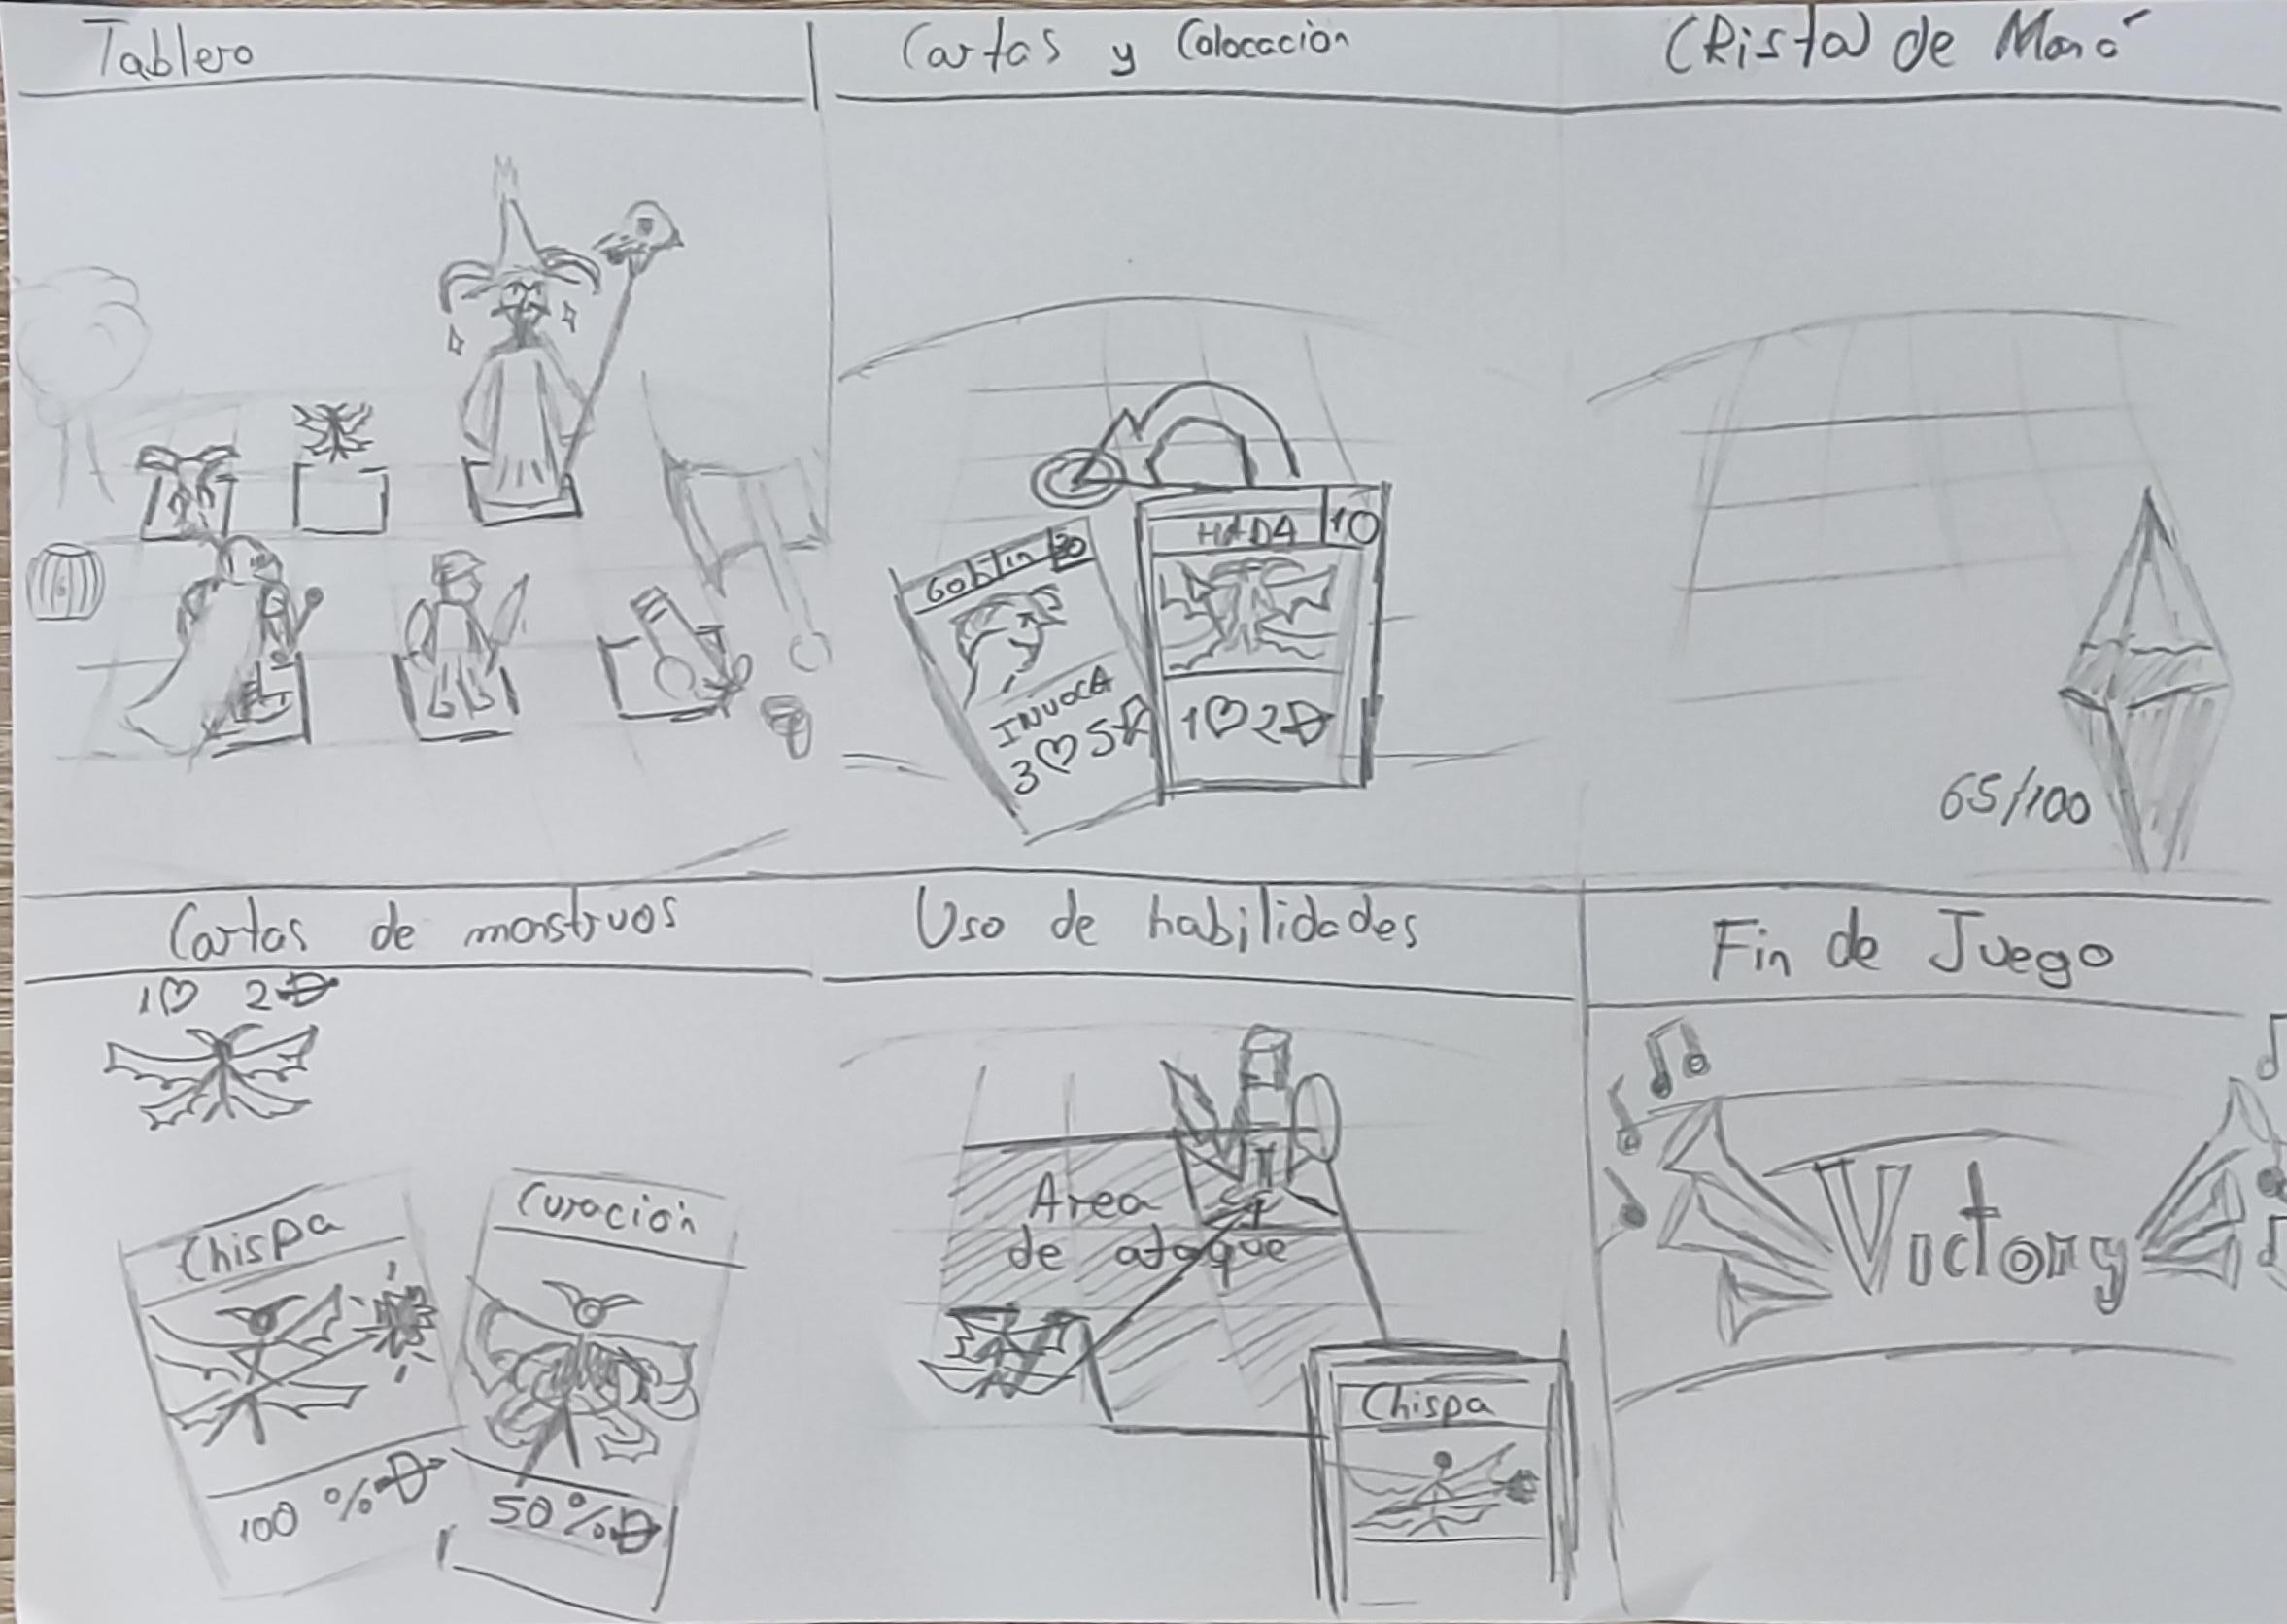 Tablero
Cartas y Colocación
CRistal de Maná
Goblin 30
INVOCA
3♡ 5
HADA 10
1♡ 2
65/100
Cartas de monstruos
1♡ 2
Chispa
100 %
Curación
50%
Uso de habilidades
Area
de ataque
Chispa
Fin de Juego
Victory